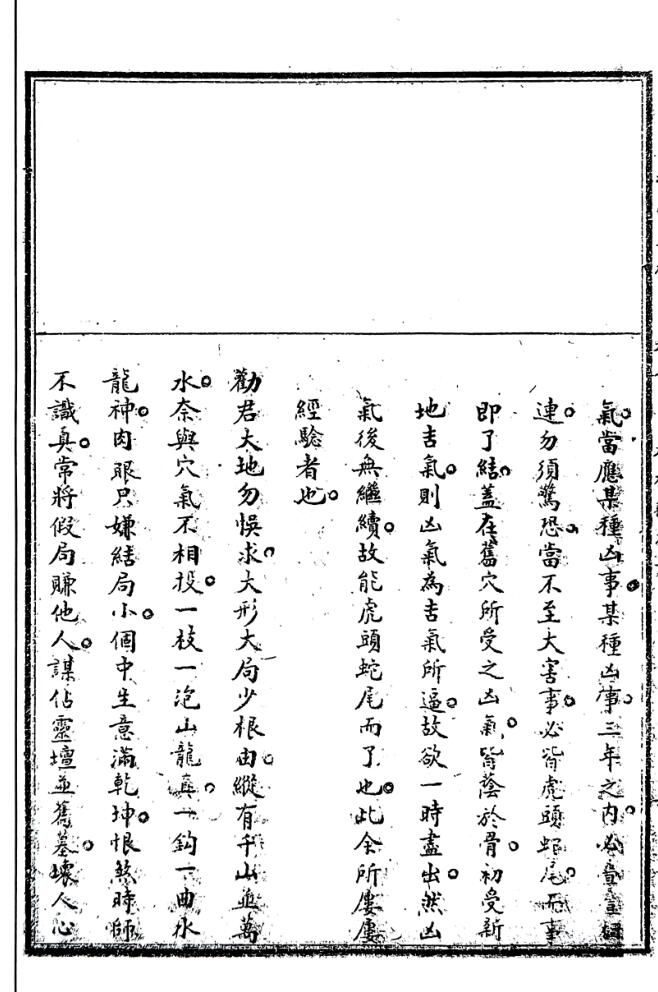 氣當應某種凶事某種凶事三年之內必
連勿須驚恐當不至大害事必皆虎頭蛇尾而事
即了結蓋在舊穴所受之凶氣皆蔭於骨初受新
地吉氣則凶氣為吉氣所逼故欲一時盡出然凶
氣後無繼續故能虎頭蛇尾而了也此余所屢屢
經驗者也
勸君大地勿悞求大形大局少根由縱有千山並萬
水奈與穴氣不相投一枝一泡山龍真一鈎一曲水
龍神肉眼只嫌結局小個中生意滿乾坤恨煞時師
不識真常將假局賺他人謀佔靈壇並舊墓壞人心